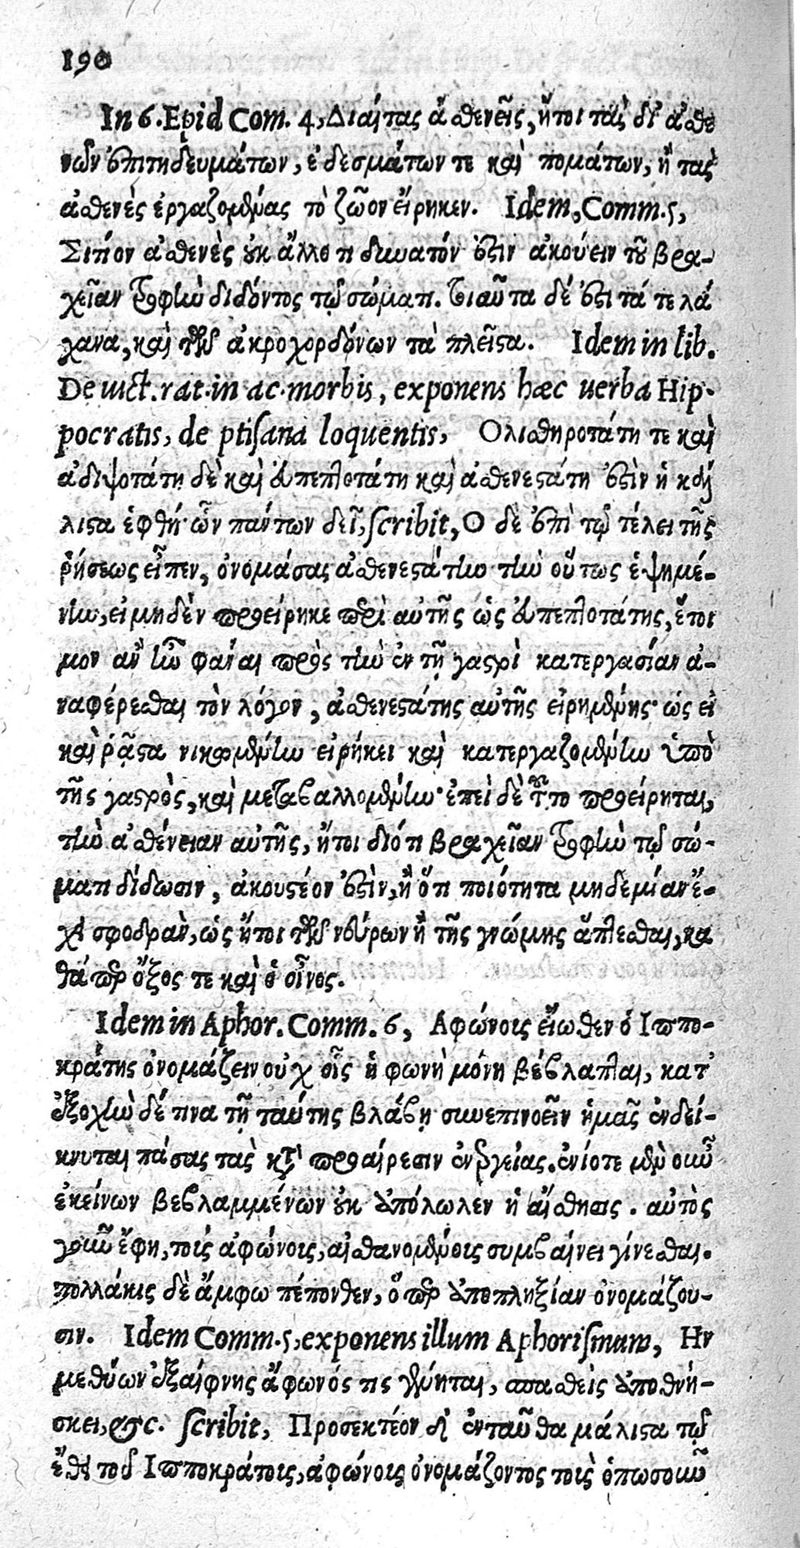 190
In 6. Epid Com. 4, Διαίτας ἀσθενεῖς, ἤτοι τὰς δι' ἀσθε
νῶν ἐπιτηδευμάτων, ἐδεσμάτων τε καὶ πομάτων, ἢ τὰς
ἀσθενὲς ἐργαζομένας τὸ ζῶον εἴρηκεν. Idem, Comm. 5,
Σιτίον ἀσθενὲς οὐκ ἄλλο τι δυνατόν ἐστιν ἀκούειν τοῦ βρα-
χεῖαν τροφὴν διδόντος τῷ σώματι. τοιαῦτα δέ ἐστι τά τε λά
χανα, καὶ τῶν ἀκροχορδόνων τὰ πλεῖστα. Idem in lib.
De uict. rat. in ac. morbis, exponens hæc uerba Hip-
pocratis, de ptisana loquentis, Ολισθηροτάτη τε καὶ
ἀδιψοτάτη δὲ καὶ εὐπεπτοτάτη καὶ ἀσθενεστάτη ἐστὶν ἡ κάλ
λιστα ἑφθή· ὧν πάντων δεῖ, scribit, Ο δὲ ἐπὶ τῷ τέλει τῆς
ῥήσεως εἶπεν, ὀνομάσας ἀσθενεστάτην τὴν οὕτως ἑψημέ-
νην, εἰ μηδὲν προείρηκε περὶ αὐτῆς ὡς εὐπεπτοτάτης, ἕτοι
μον ἂν ἦν φάναι πρὸς τὴν ἐν τῇ γαστρὶ κατεργασίαν ἀ-
ναφέρεσθαι τὸν λόγον, ἀσθενεστάτης αὐτῆς εἰρημένης· ὡς εἰ
καὶ ῥᾷστα νικωμένην εἰρήκει καὶ κατεργαζομένην ὑπὸ
τῆς γαστρὸς, καὶ μεταβαλλομένην· ἐπεὶ δὲ τοῦτο προείρηται,
τὴν ἀσθένειαν αὐτῆς, ἤτοι διότι βραχεῖαν τροφὴν τῷ σώ-
ματι δίδωσιν, ἀκουστέον ἐστὶν, ἢ ὅτι ποιότητα μηδεμίαν ἔ-
χει σφοδρὰν, ὡς ἤτοι τῶν νεύρων ἢ τῆς γνώμης ἅπτεσθαι, κα
θάπερ ὄξος τε καὶ ὁ οἶνος.
Idem in Aphor. Comm. 6, Αφώνοις εἴωθεν ὁ Ιππο-
κράτης ὀνομάζειν οὐχ οἷς ἡ φωνὴ μόνη βέβλαπται, κατ'
ἐξοχὴν δέ τινα τῇ ταύτης βλάβῃ συνεπινοεῖν ἡμᾶς ἐνδεί-
κνυται πάσας τὰς κατὰ προαίρεσιν ἐνεργείας. ἐνίοτε μὲν οὖν
ἐκείνων βεβλαμμένων οὐκ ἀπόλωλεν ἡ αἴσθησις. αὐτὸς
γοῦν ἔφη, τοῖς ἀφώνοις, αἰσθανομένοις συμβαίνει γίνεσθαι.
πολλάκις δὲ ἄμφω πέπονθεν, ὅπερ ἀποπληξίαν ὀνομάζου-
σιν. Idem Comm. 5, exponens illum Aphorismum, Ην
μεθύων ἐξαίφνης ἄφωνός τις γένηται, σπασθεὶς ἀποθνή-
σκει, &c. scribit, Προσεκτέον δ' ἐνταῦθα μάλιστα τῷ
ἔθει τοῦ Ιπποκράτοις, ἀφώνοις ὀνομάζοντος τοὶς ὁπωσοῦν